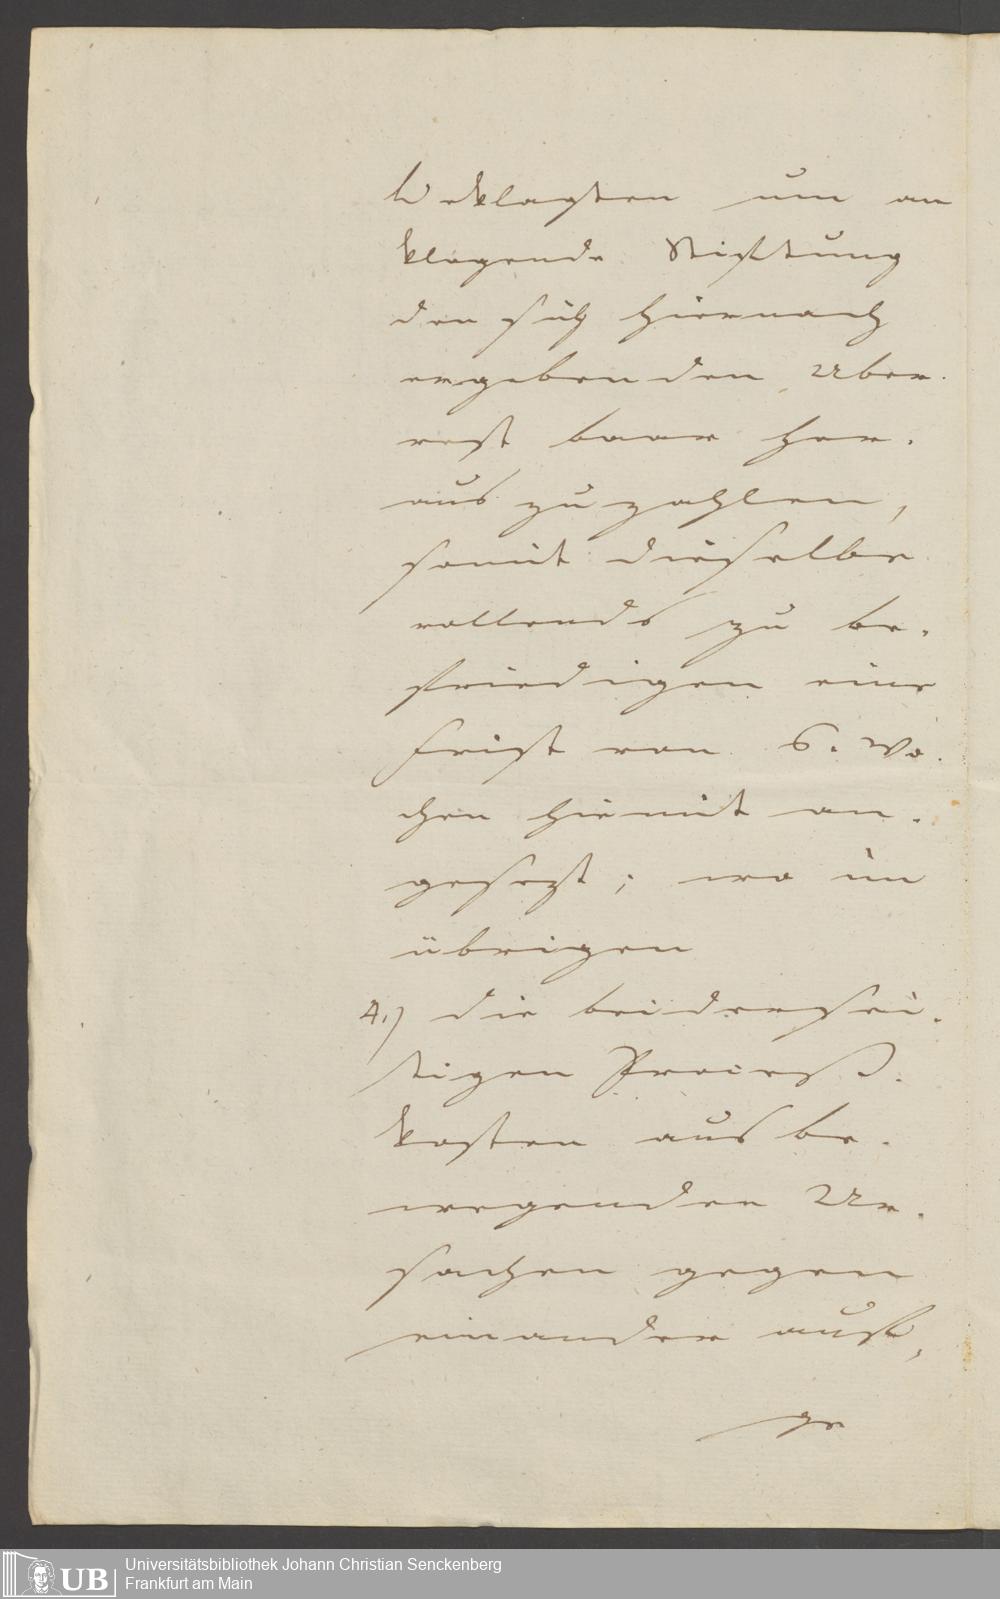 beklagten um an
klagende Stiftung
den sich hiernach
ergebenden Uber-
rest baar her-
aus zu zahlen,
somit dieselbe
vollends zu be-
friedigen eine
Frist von 6. Wo-
chen hiemit an-
gesezt; wo im
übrigen
4.) die beidersei-
tigen Proceß-
kosten aus be-
wegenden Ur-
sachen gegen
einander auf,
ge
UB Universitätsbibliothek Johann Christian Senckenberg
Frankfurt am Main